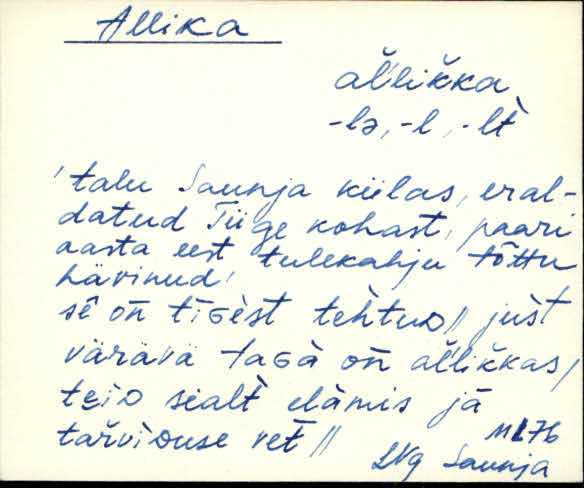 Allika
al̆'likka
-lə, -l, -lt̀
'talu Saunja külas, eral-
datud Tiige kohast, paari
aasta eest tulekahju tõttu
hävinud'
sē on̄ tīɢèst tèhtuᴅ // just̀
värävä taɢà on̄ al̆'likkas,
teiᴅ sealt̀ elàmis jā
tar̆viᴅuse vet̀ //
ML76
LNg Saunja